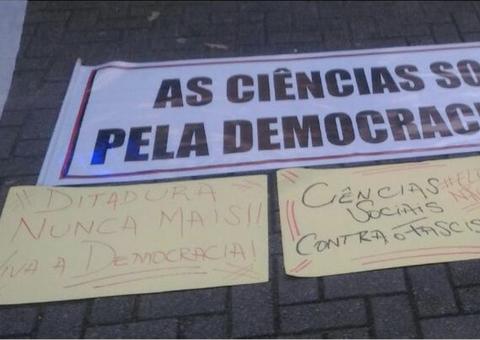 AS CIÊNCIAS SO
PELA DEMOCRAC
#DITADURA
NUNCA MAIS!!
VIVA A DEMOCRACIA!
CIÊNCIAS #ELE
SOCIAIS NÃO
CONTRA O FASCIS